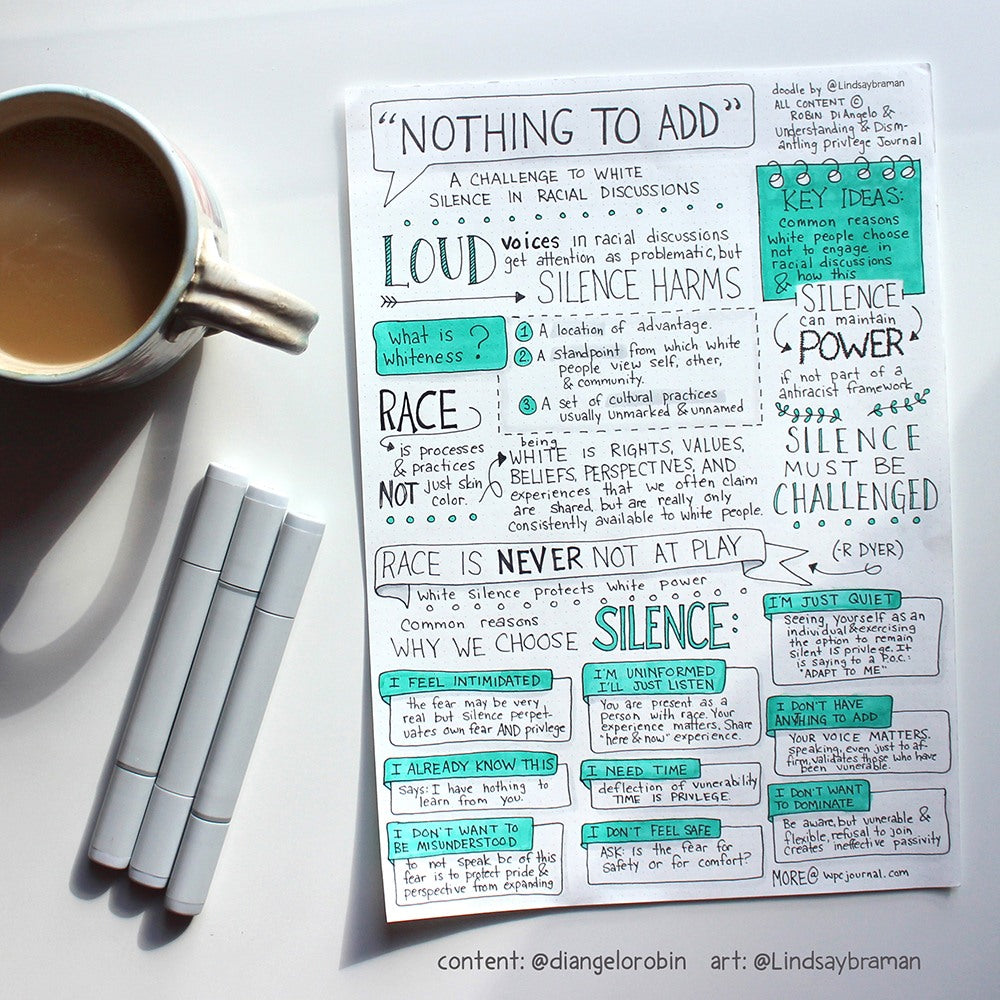 "NOTHING TO ADD"
A CHALLENGE TO WHITE
SILENCE IN RACIAL DISCUSSIONS
doodle by @Lindsaybraman
ALL CONTENT ©
ROBIN DiAngelo &
Understanding & Dism-
antling privlege Journal
LOUD voices in racial discussions
get attention as problematic, but
SILENCE HARMS
KEY IDEAS:
common reasons
white people choose
not to engage in
racial discussions
& how this
SILENCE
can maintain
POWER
if not part of a
antiracist framework
SILENCE
MUST BE
CHALLENGED
What is
whiteness?
1 A location of advantage.
2. A standpoint from which white
people view self, other,
& community.
3. A set of cultural practices
usually unmarked & unnamed
RACE
is processes
& practices
NOT just skin
color.
being
WHITE IS RIGHTS, VALUES,
BELIEFS, PERSPECTIVES, AND
experiences that we often claim
are shared, but are really only
consistently available to white people.
RACE IS NEVER NOT AT PLAY
(-R DYER)
white silence protects white power
Common reasons
WHY WE CHOOSE SILENCE:
I FEEL INTIMIDATED
the fear may be very
real but silence perpet-
uates own fear AND privlege
I'M UNINFORMED
I'LL JUST LISTEN
You are present as a
person with race. Your
experience matters. Share
"here & now" experience.
I'M JUST QUIET
Seeing yourself as an
individual & exercising
the option to remain
silent is privlege. It
is saying to a P.O.C.:
"ADAPT TO ME"
I DON'T HAVE
ANYHING TO ADD
YOUR VOICE MATTERS.
speaking, even just to af-
firm, validates those who have
been vunerable.
I ALREADY KNOW THIS
says: I have nothing to
learn from you.
I NEED TIME
deflection of vunerability
TIME IS PRIVLEGE.
I DON'T WANT
TO DOMINATE
Be aware, but vunerable &
flexible, refusal to join
creates ineffective passivity
I DON'T WANT TO
BE MISUNDERSTOOD
to not speak bc of this
fear is to protect pride &
perspective from expanding
I DON'T FEEL SAFE
ASK: is the fear for
safety or for comfort?
MORE@ wpcjournal.com
content: @diangelorobin art: @Lindsaybraman